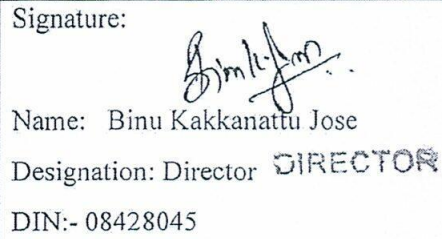 Signature:
Name: Binu Kakkanattu Jose
Designation: Director DIRECTOR
DIN:- 08428045